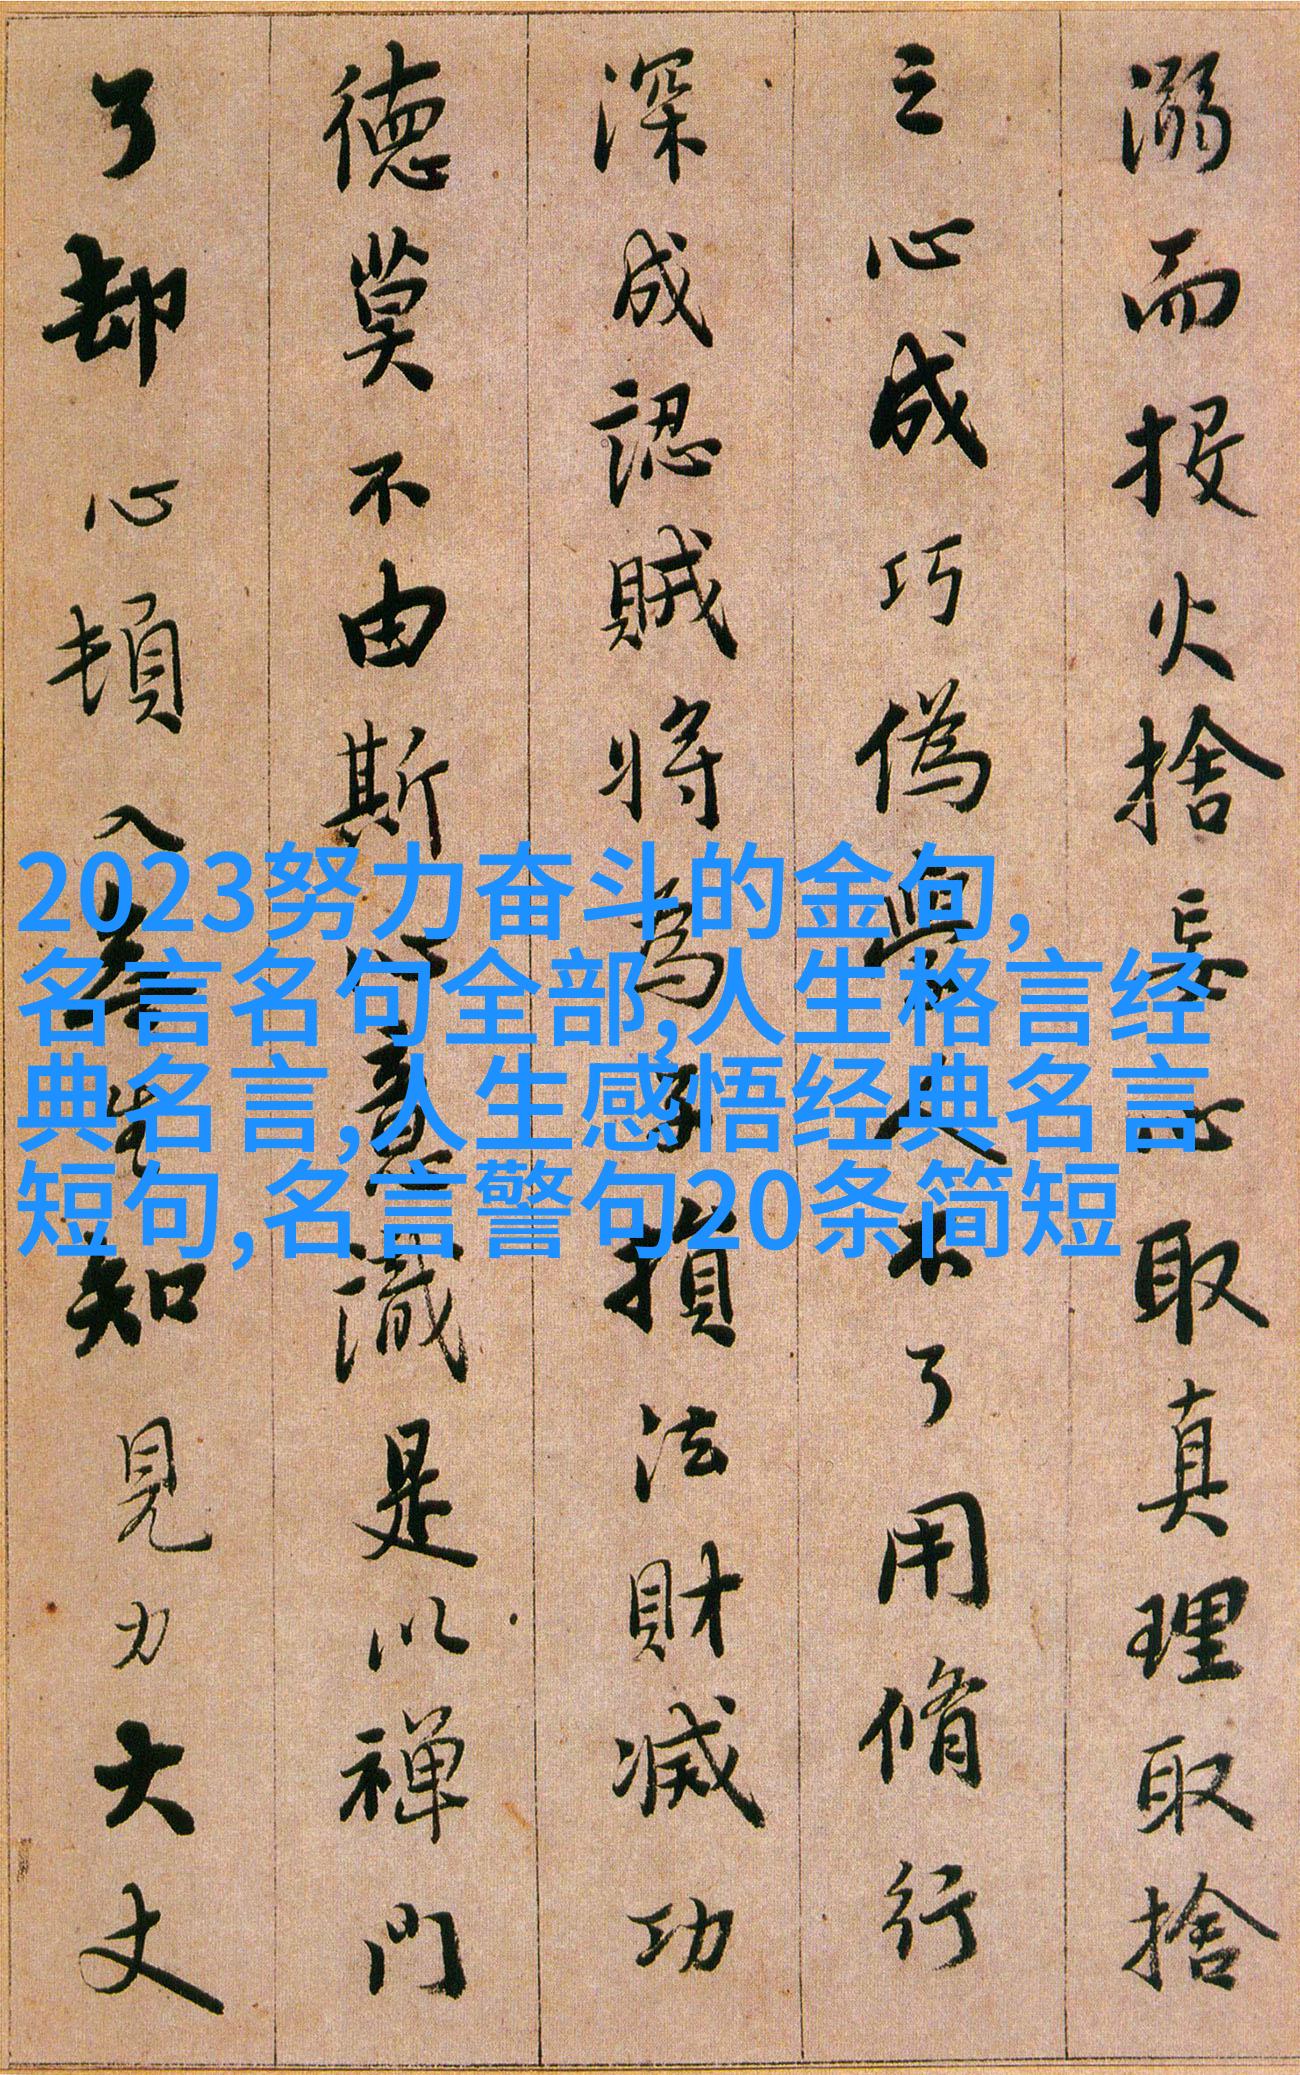 溺而投火捨妄心取真理取捨
之心成巧偽學人不了用脩行
深成認賊將為子損法財滅功
德莫不由斯心意識是以禪門
了却心頓入無生知見力大丈
2023努力奋斗的金句,
名言名句全部,人生格言经
典名言,人生感悟经典名言
短句,名言警句20条简短